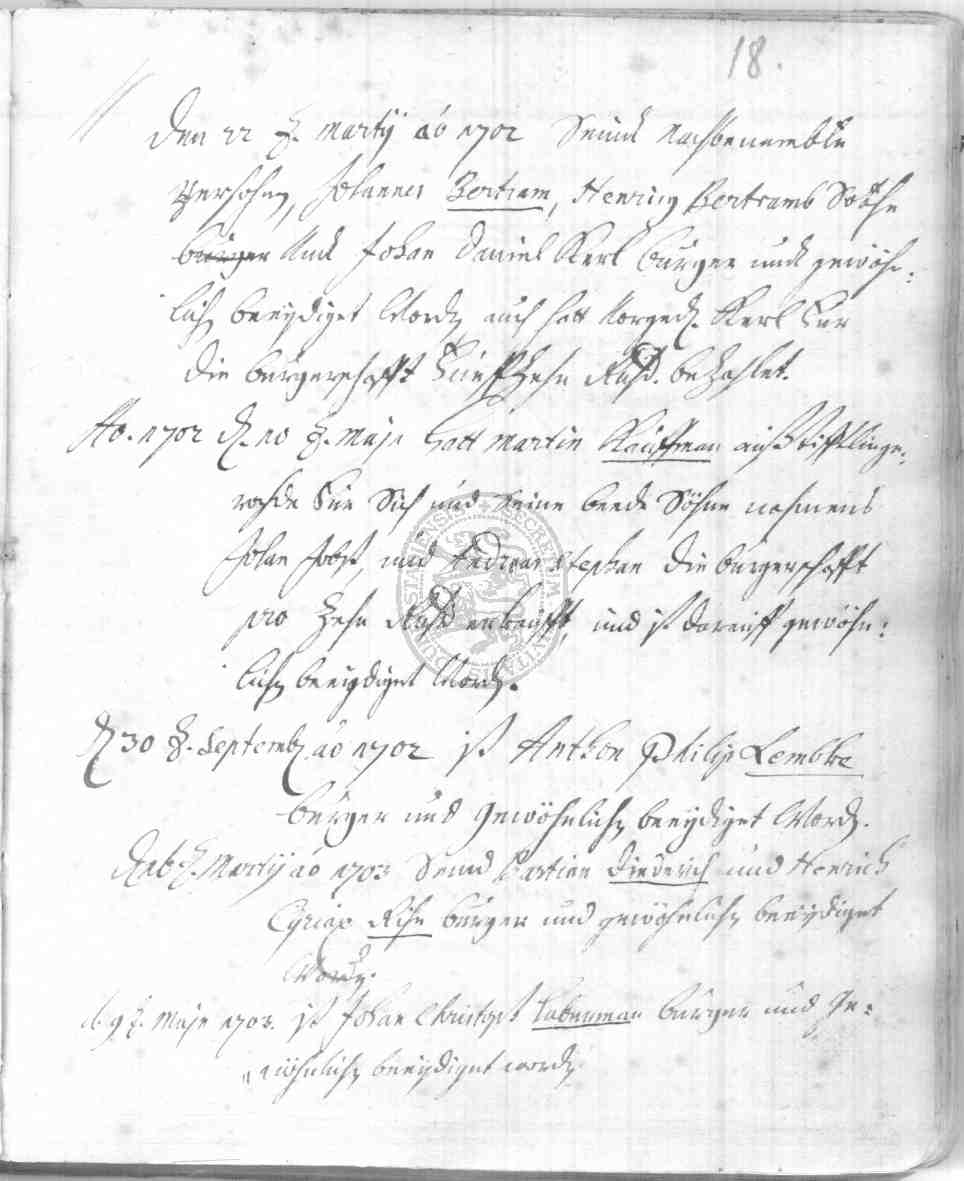 18.
Den 22 t. Martij ao 1702 Seind Nachbenembte
Persohn, Johannes Bertram, Henrich Bertrams Sohn
bürger Und Johan Daniel Kerl bürger und gewöhn:
lich beeydiget Word auch hatt Vorged. Kerl Vor
die bürgerschafft Fünffzehn Rthlr. bezahlet.
Ao. 1702 d. 10 t. Maje hatt Martin Kauffman auß
rohde Vor Sich und Seine beede Söhne nahmens
Johan Jobst, und Andreas Stephan die bürgerschafft
pro Zehn Rthlr erkaufft, und ist darauff gewöhn:
lich beeydiget Word.
d 30 t. Septemb ao 1702 ist Anthon Philip Lembke
bürger und gewöhnlich beeydiget Word.
d 16 t. Martij ao 1703 Seind Bastian Diederich und Henrich
Cyriax bürger und gewöhnlich beeydiget
Word.
d. 9 t. Maje 1703. ist Johan Christoph Haberman bürger und Ge:
wöhnlich beeydiget word
SECRETUM CIVITATIS